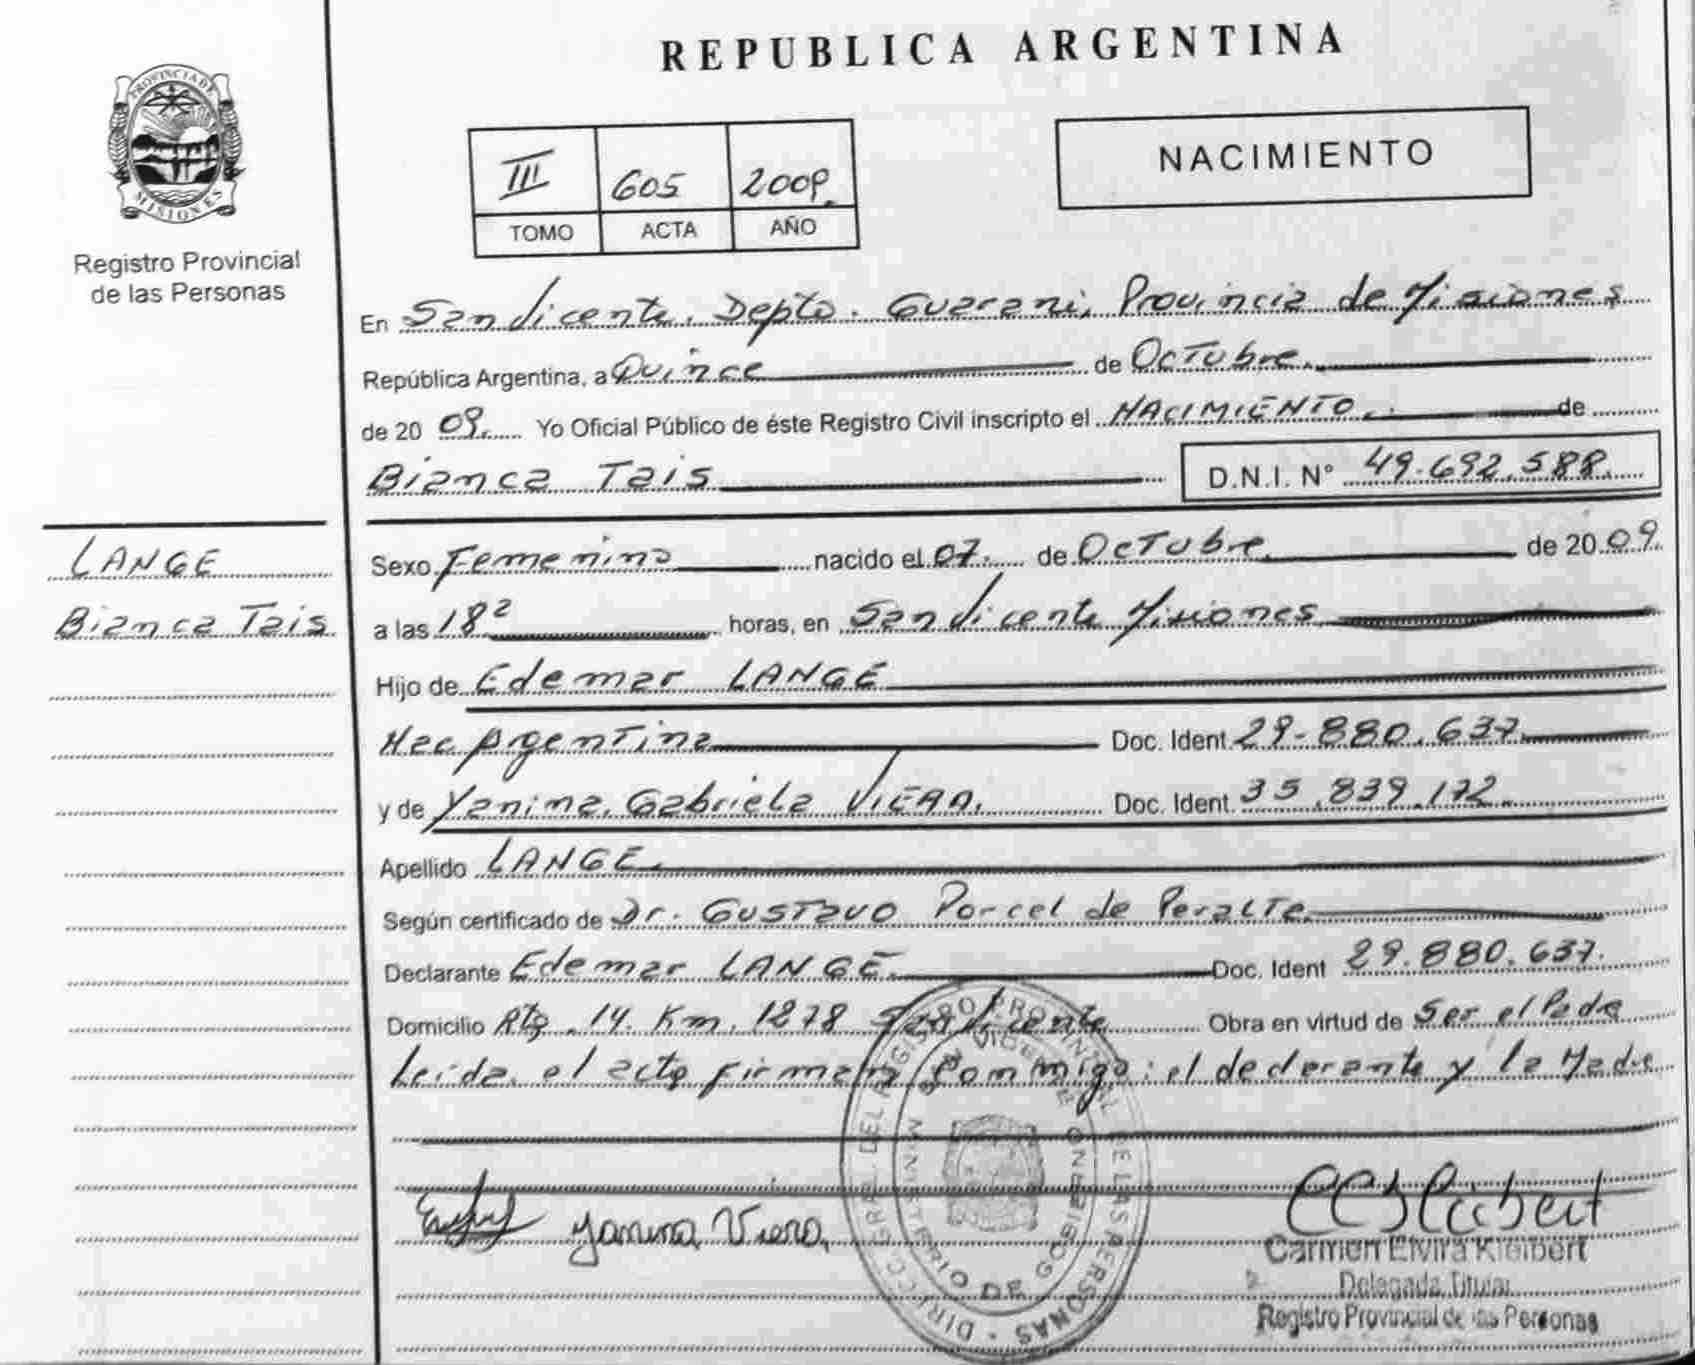 REPUBLICA ARGENTINA
PROVINCIA DE MISIONES
Registro Provincial
de las Personas
III 605 2009.
TOMO ACTA AÑO
NACIMIENTO
En San Vicente. Depto. Guarani, Provincia de Misiones
República Argentina, a Quince de Octubre.
de 20 09. Yo Oficial Público de éste Registro Civil inscripto el NACIMIENTO. de
Bianca Tais D.N.I. N° 49.692.588.
LANGE
Bianca Tais
Sexo Femenino nacido el 07. de Octubre de 20 09.
a las 18² horas, en San Vicente Misiones
Hijo de Edemar LANGE
Nac Argentina Doc. Ident. 29.880.637.
y de Yanina Gabriela VIERA. Doc. Ident. 35.839.172.
Apellido LANGE.
Según certificado de Dr. Gustavo Porcel de Peralta
Declarante Edemar LANGE Doc. Ident 29.880.637.
Domicilio Rta. 14. Km. 1278 San Vicente Obra en virtud de Ser el Padre
Leida el acta firman Conmigo: el declarante y la Madre
Yanina Viera
DIRECC GRAL. DEL REGISTRO PROVINCIAL DE LAS PERSONAS
MINISTERIO DE GOBIERNO
SAN VICENTE
Carmen Elvira Kleibert
Delegada Titular
Registro Provincial de las Personas